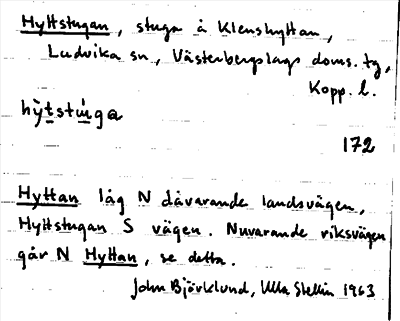 Hyttstugan, stuga å Klenshyttan,
Ludvika sn, Västerbergslags doms. tg,
Kopp. l.
hỳtstùga
172
Hyttan låg N dåvarande landsvägen,
Hyttstugan S vägen. Nuvarande riksvägen
går N Hyttan, se detta.
John Björklund, Ulla Stellin 1963